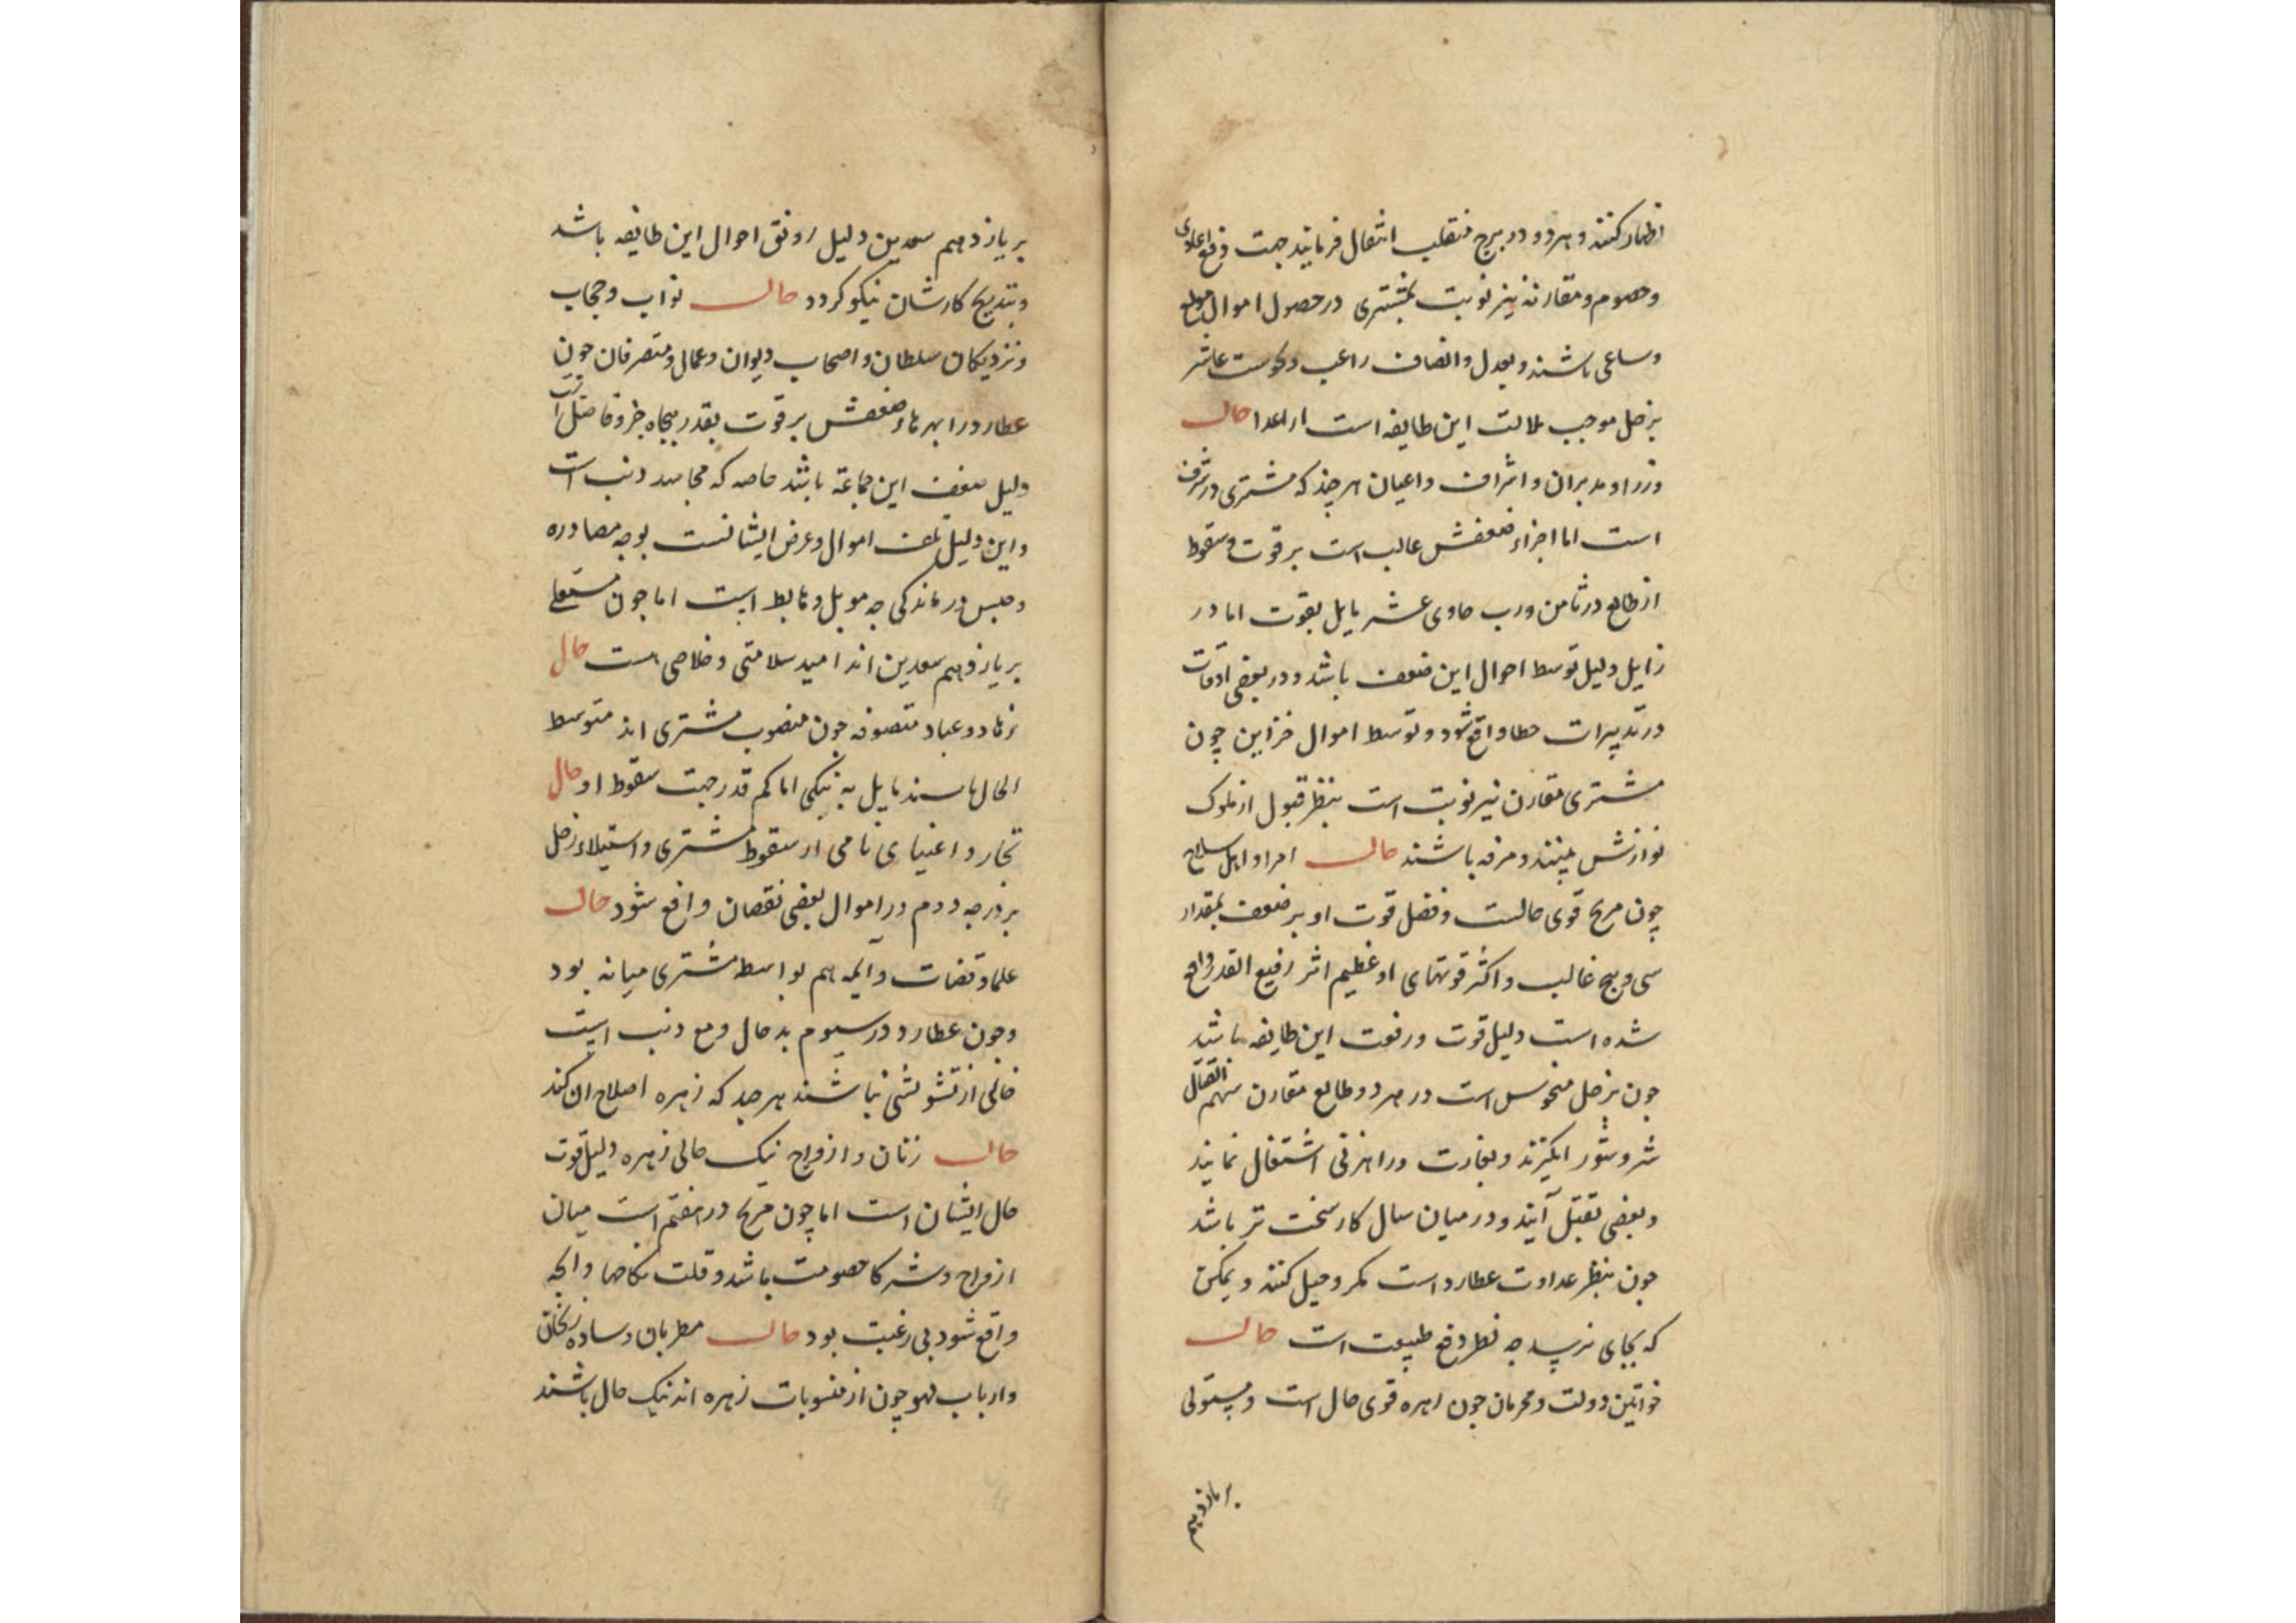 اظهار کنند و هر دو در برج منقلب انتقال فرمایند جهت دفع اعادی
و خصوم و مقارنه نیر نوبت بمشتری در حصول اموال
و ساعی باشند و بعدل و انصاف راغب و عاشر
بزحل موجب ملالت این طایفه است از اعدا حال
وزرا و مدبران و اشراف و اعیان هر چند که مشتری در شرف
است اما اجزاء ضعفش غالب است بر قوت و سقوط
از طالع در ثامن و رب حادی عشر مایل بقوت اما در
زایل دلیل توسط احوال این صنف باشد و در بعضی اوقات
در تدبیرات خطا واقع شود و توسط اموال خزاین چون
مشتری مقارن نیر نوبت است بنظر قبول از ملوک
نوازش بینند و مرفه باشند حال امرا و اهل سلاح
چون مریخ قوی حالست و فضل قوت او بر ضعف بمقدار
سی و پنج غالب و اکثر قوتهای او عظیم اثر رفیع القدر واقع
شده است دلیل قوت و رفعت این طایفه باشد
چون بزحل منحوس است در هر دو طالع مقارن سهم القتال
شر و شور انگیزند و بغارت و راهزنی اشتغال نمایند
و بعضی بقتل آیند و در میان سال کار سخت تر باشد
چون بنظر عداوت عطارد است مکر و حیل کنند و ممکن
که بجای نرسد چه نظر دفع طبیعت است حال
خواتین دولت و محرمان چون زهره قوی حال است و مستولی
بر یازدهم
بر یازدهم سعدین دلیل رونق احوال این طایفه باشد
و بتدریج کارشان نیکو گردد حال نواب و حجاب
و نزدیکان سلطان و اصحاب دیوان و عمال و متصرفان چون
عطارد را بهرهاء ضعفش بر قوت بقدر پنجاه جزو فاضل است
دلیل ضعف این جماعة باشد خاصه که مجاسد ذنب است
و این دلیل تلف اموال و عرض ایشانست بوجه مصادره
و حبس و درماندگی چه موبل و هابط است اما چون مستعلی
بر یازدهم سعدین اند امید سلامتی و خلاصی هست حال
زهاد و عباد متصوفه چون منصوب مشتری اند متوسط
الحال باشند مایل به نیکی اما کم قدر جهت سقوط او حال
تجار و اغنیای نامی از سقوط مشتری و استیلاء زحل
بر درجه دوم در اموال بعضی نقصان واقع شود حال
علما و قضات و ائمه هم بواسطه مشتری میانه بود
و چون عطارد در سیوم بد حال و مع ذنب است
خالی از تشویشی نباشند هر چند که زهره اصلاح آن کند
حال زنان و ازواج نیک حالی زهره دلیل قوت
حال ایشان است اما چون مریخ در هفتم است میان
ازواج و شرکا خصومت باشد و قلت نکاحها و آنچه
واقع شود بی رغبت بود حال مطربان و ساده زنخان
و ارباب لهو چون از منسوبات زهره اند نیک حال باشند